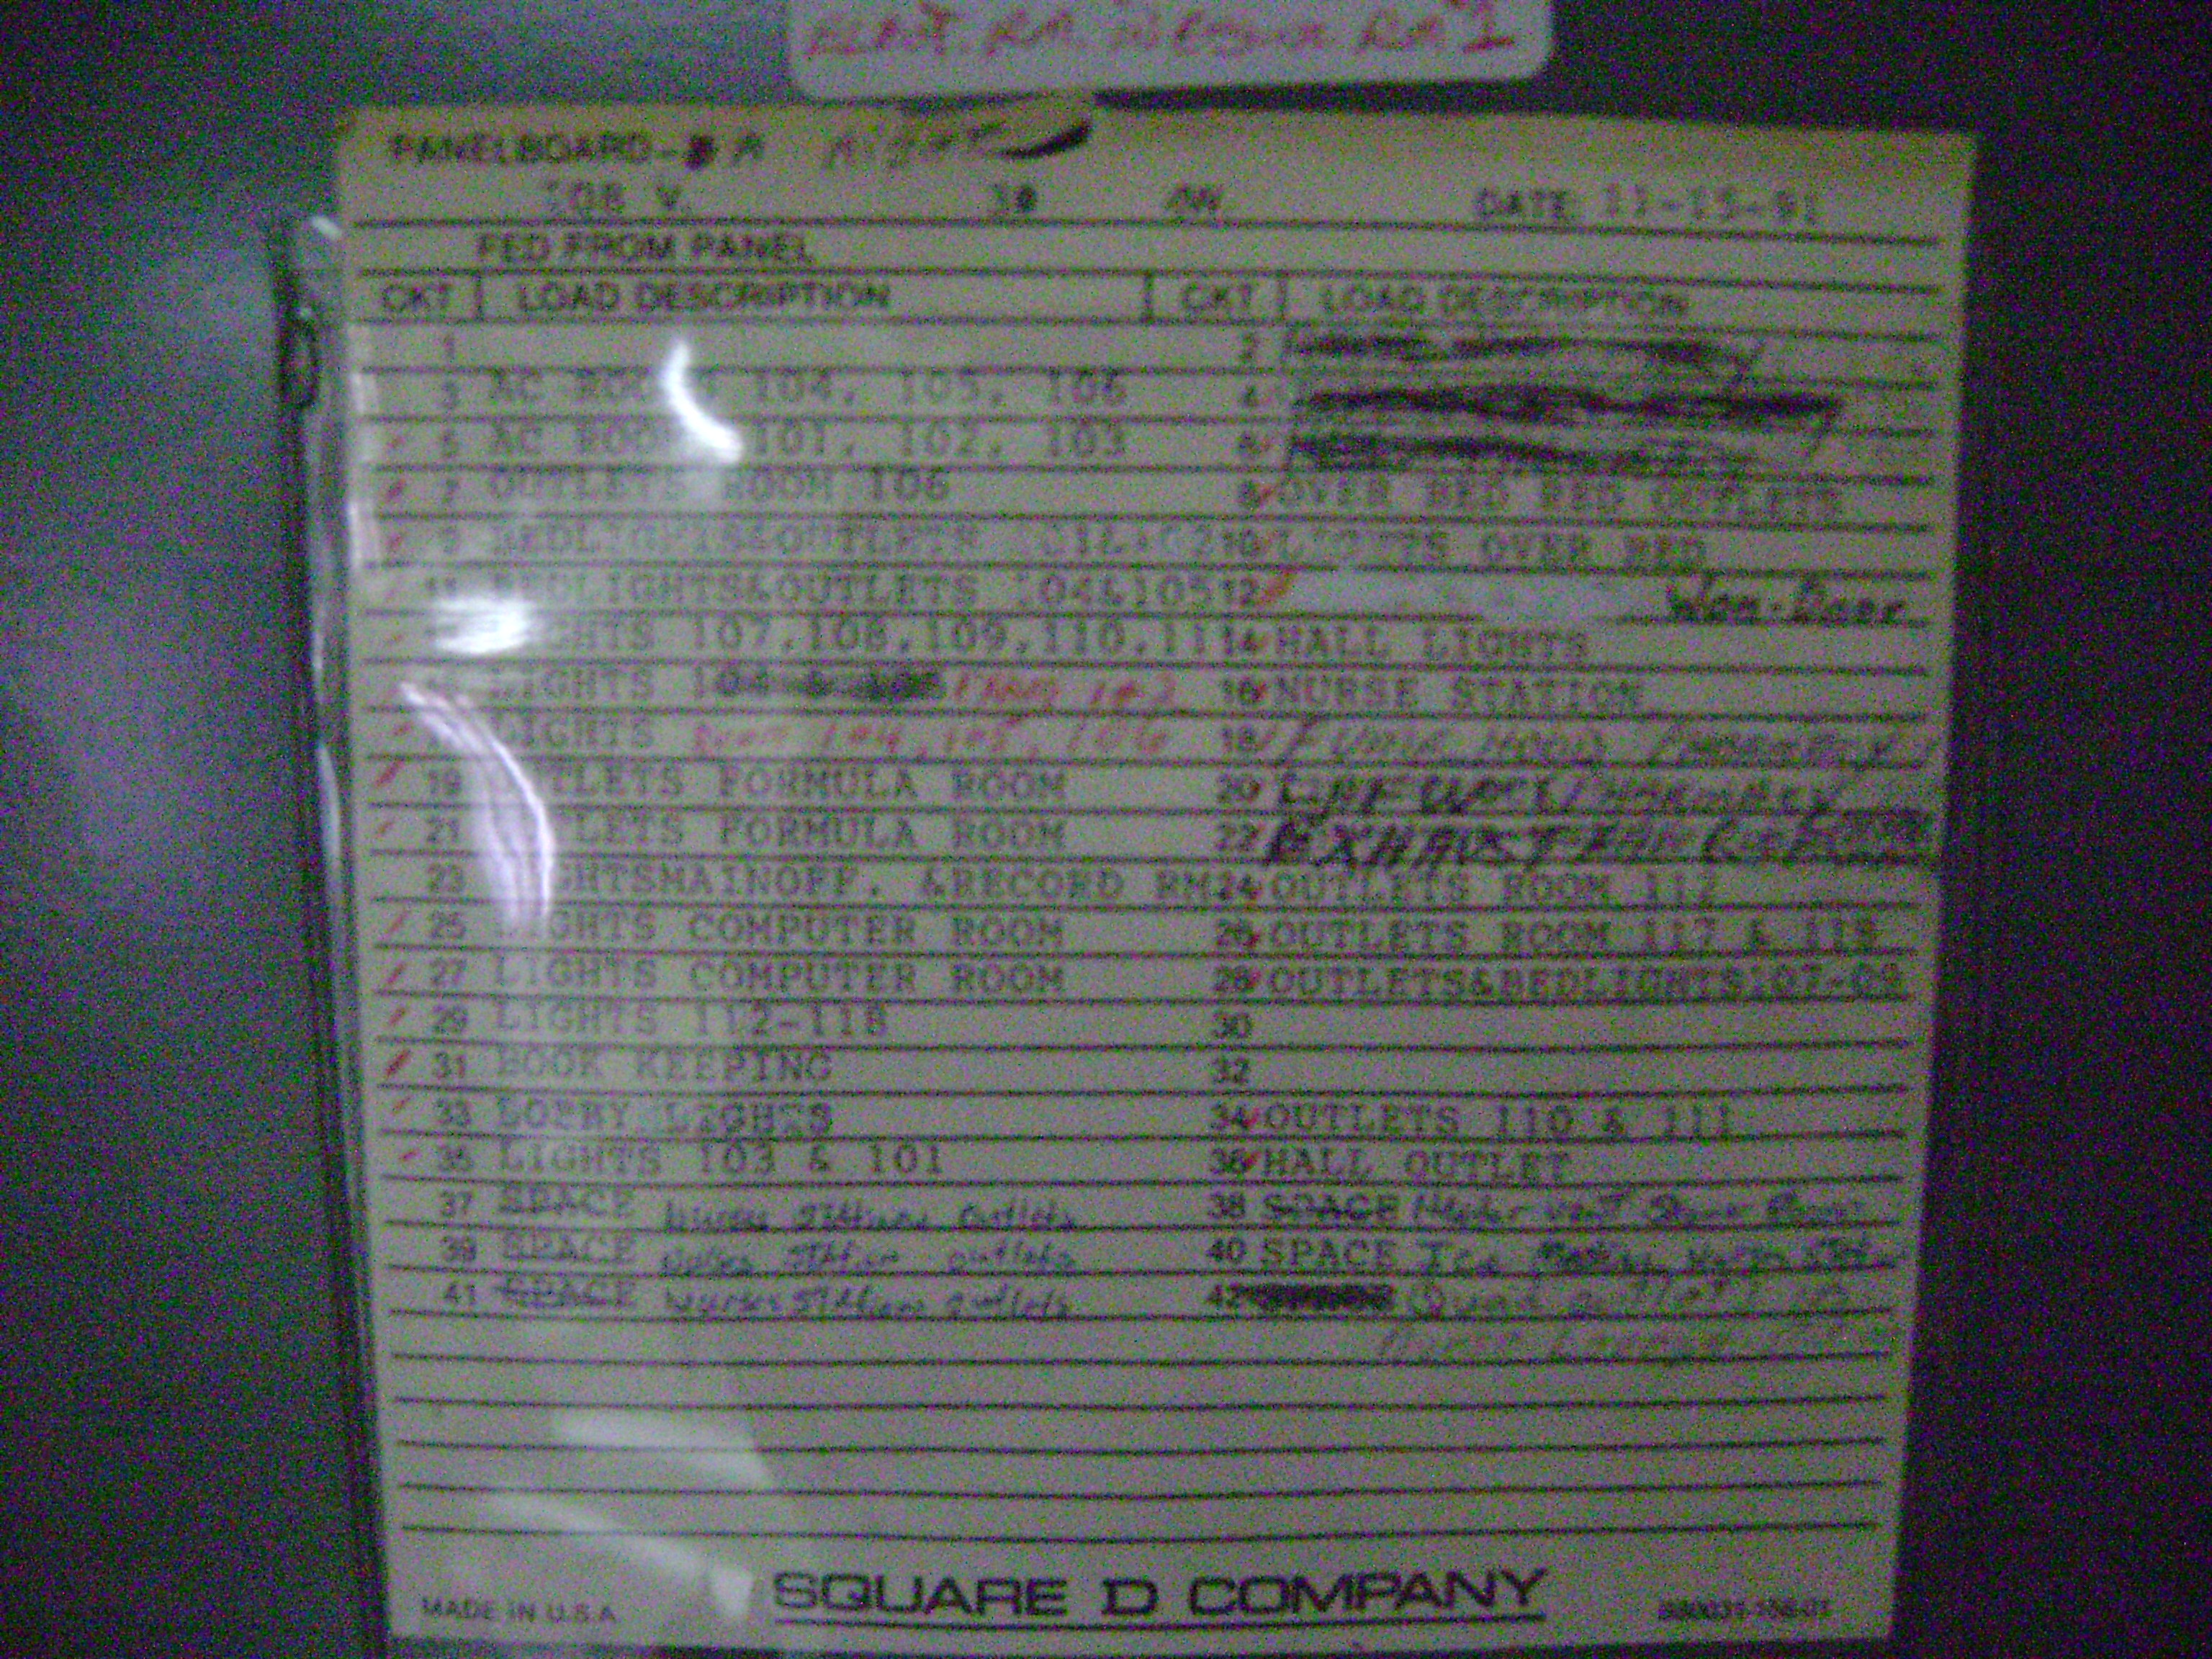 PANELBOARD- A
208 V. 30 4W DATE 11-15-91
FED FROM PANEL
CKT LOAD DESCRIPTION CKT LOAD DESCRIPTION
1 2
3 AC ROOMS 104, 105, 106 4
5 AC ROOMS 101, 102, 103 6
7 OUTLETS ROOM 106 8 OVER BED RED OUTLETS
9 BEDLIGHTS&OUTLETS 10 LIGHTS OVER BED
11 BEDLIGHTS&OUTLETS 104&105 12 Won-Door
LIGHTS 107,108,109,110,111 14 HALL LIGHTS
LIGHTS 16 NURSE STATION
LIGHTS Room 104, 105, 106 18 FUME HOOD PHARMACY
19 OUTLETS FORMULA ROOM 20
21 OUTLETS FORMULA ROOM 22 EXHAUST FAN
23 LIGHTSMAINOFF. &RECORD RM 24 OUTLETS ROOM 112
25 LIGHTS COMPUTER ROOM 26 OUTLETS ROOM 117 & 118
27 LIGHTS COMPUTER ROOM 28 OUTLETS&BEDLIGHTS107-09
29 LIGHTS 112-118 30
31 BOOK KEEPING 32
33 LOBBY LIGHTS 34 OUTLETS 110 & 111
35 LIGHTS 103 & 101 36 HALL OUTLET
37 SPACE Nurses Station outlets 38 SPACE
39 SPACE Nurses Station outlets 40 SPACE Ice
41 SPACE Nurses Station outlets 42 Quad outlets
Nurse Lounge
SQUARE D COMPANY
MADE IN U.S.A